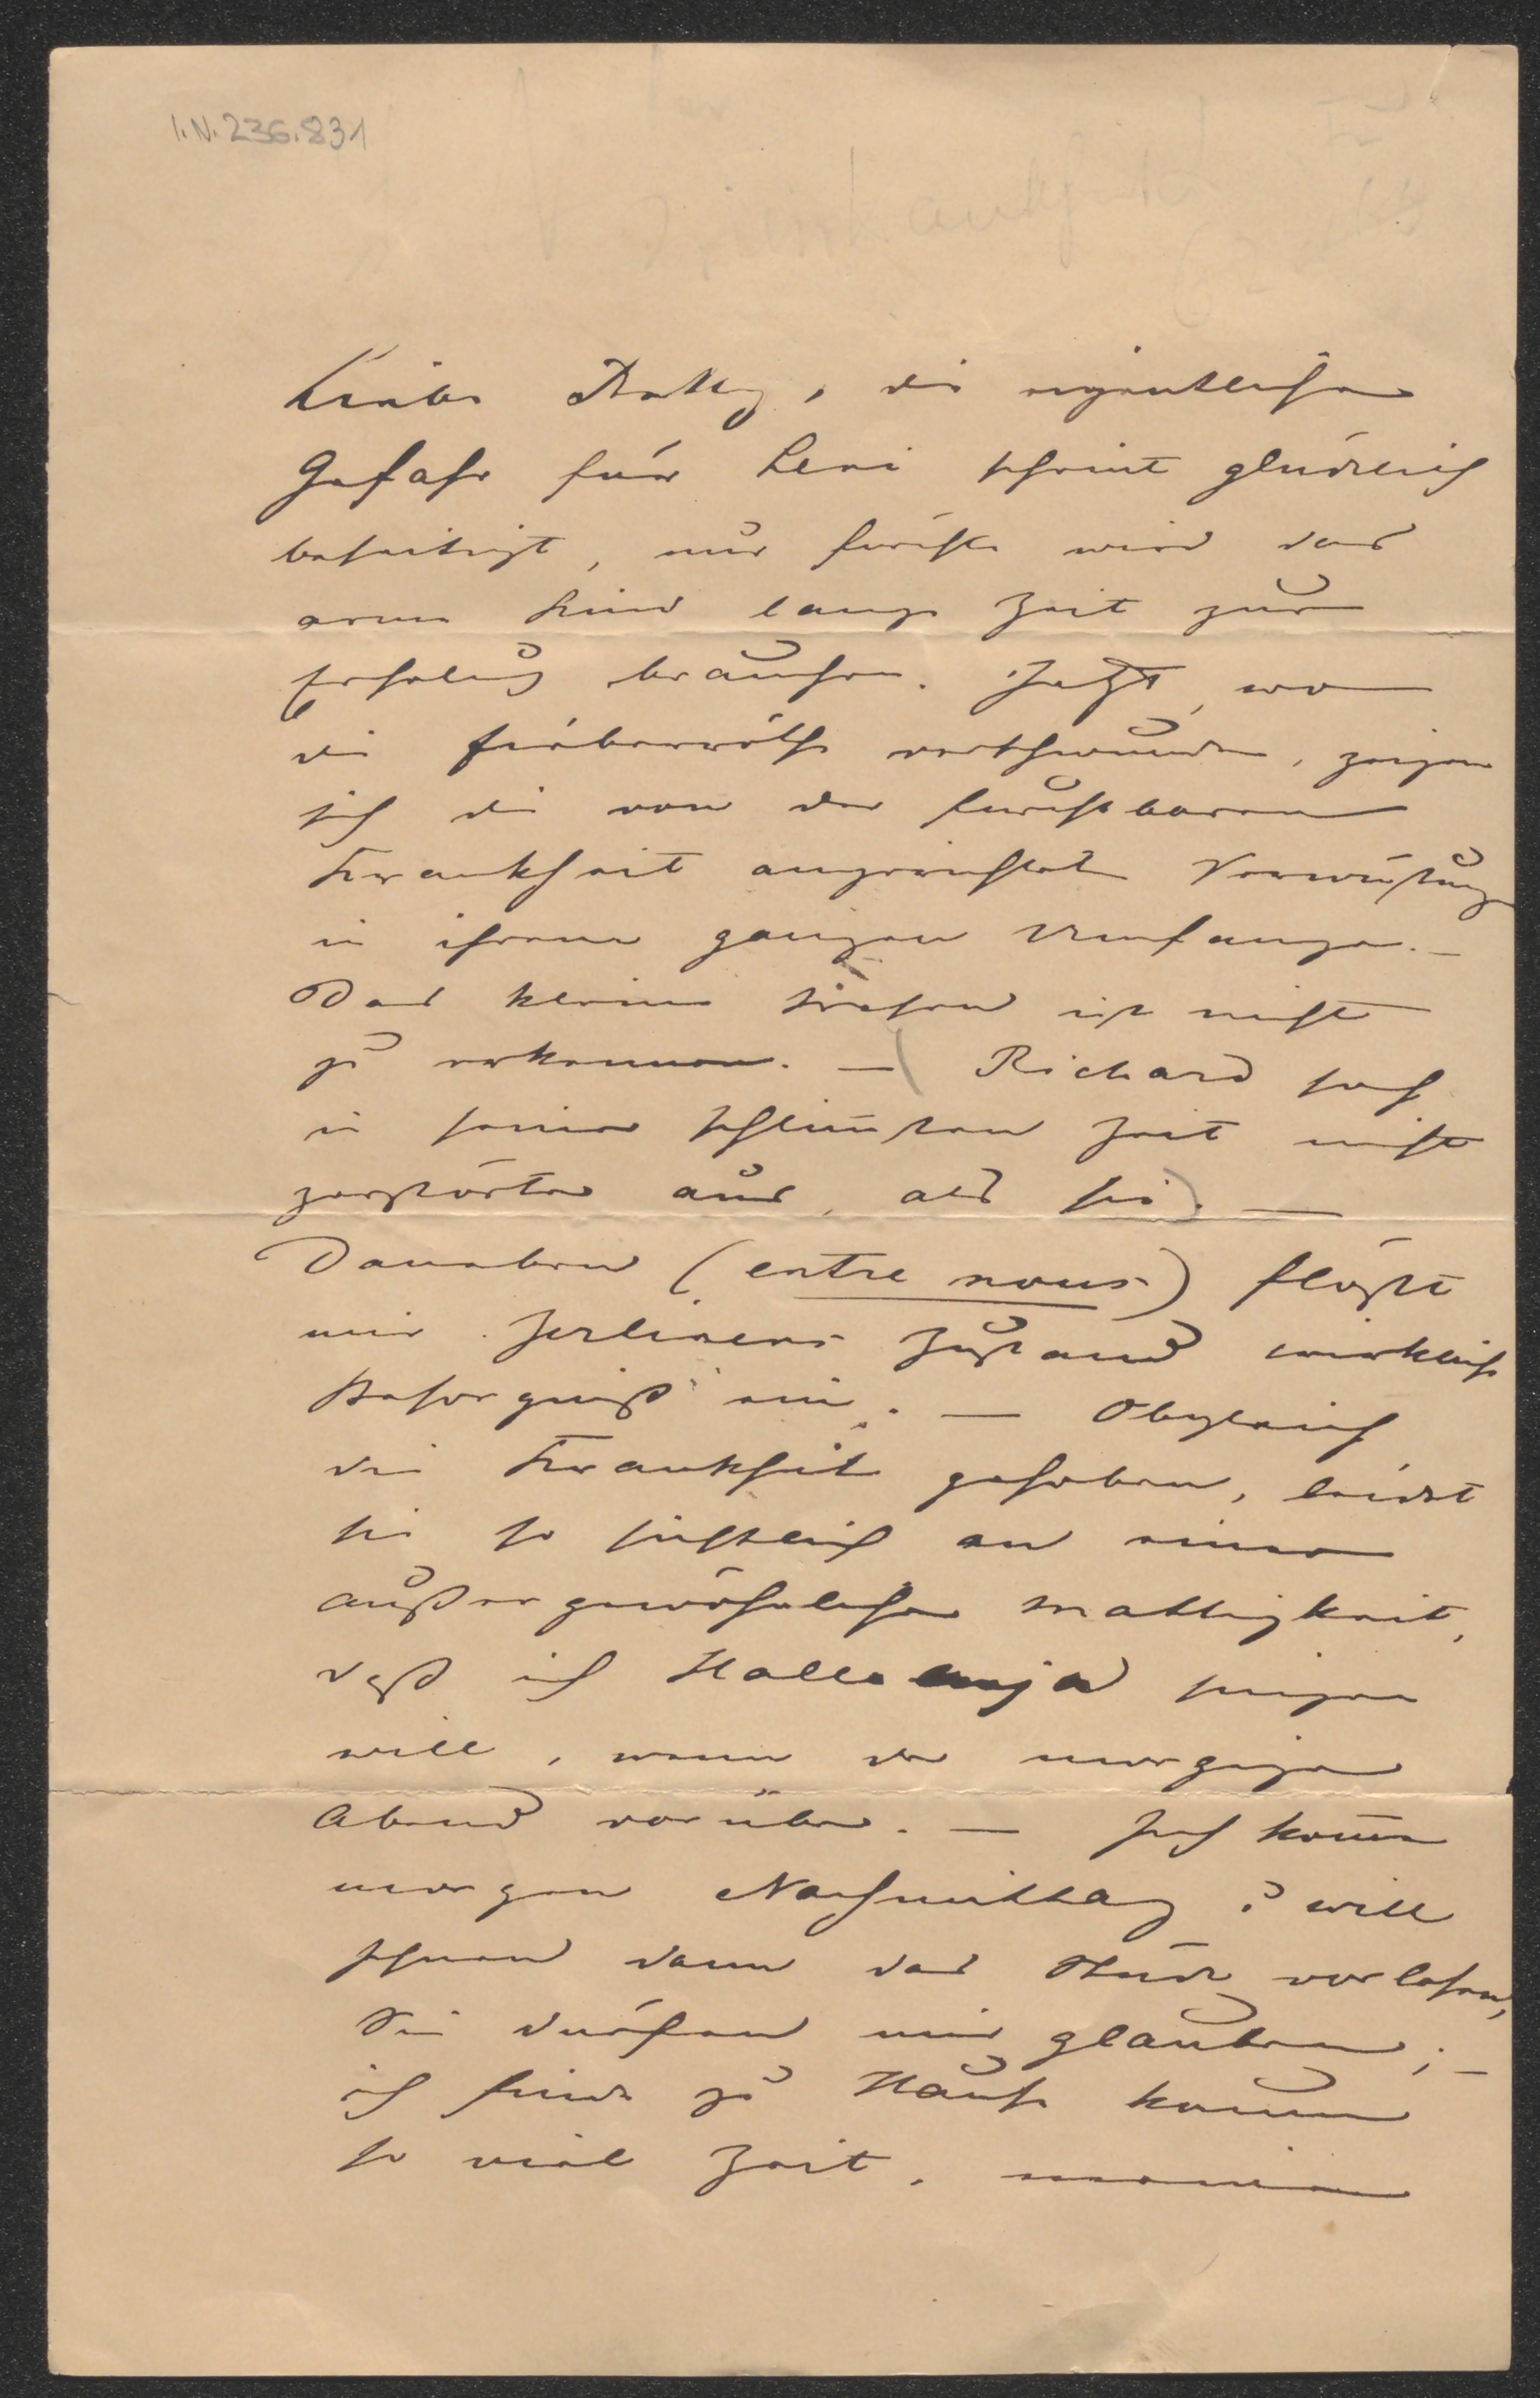 I.N. 236.831
Liebe Betty, die eigentliche
Gefahr für Leni scheint glücklich
beseitigt, nur fürchte wird das
arme Kind lange Zeit zur
Erholung brauchen. Jetzt, wo
die Fieberröthe verschwunden, zeigen
sich die von der furchtbaren
Krankheit angerichteten Verwüstungen
in ihrem ganzen Umfange. –
Das kleine Wesen ist nicht
zu erkennen. – (Richard sah
in seiner schlim̅sten Zeit nicht
zerstörter aus, als sie). –
Daneben (entre nous) flößt
mir Zerlinens Zustand wirklich
Besorgniß ein. – Obgleich
die Krankheit gehoben, leidet
sie so sichtlich an einer
außergewöhnlichen Mattigkeit,
daß ich Halleluja singen
will, wenn der morgige
Abend vorüber. – Ich kom̅e
morgen Nachmittag & will
Ihnen dann das Stück vorlesen,
Sie dürfen mir glauben; –
ich finde zu Hause kaum
so viel Zeit,